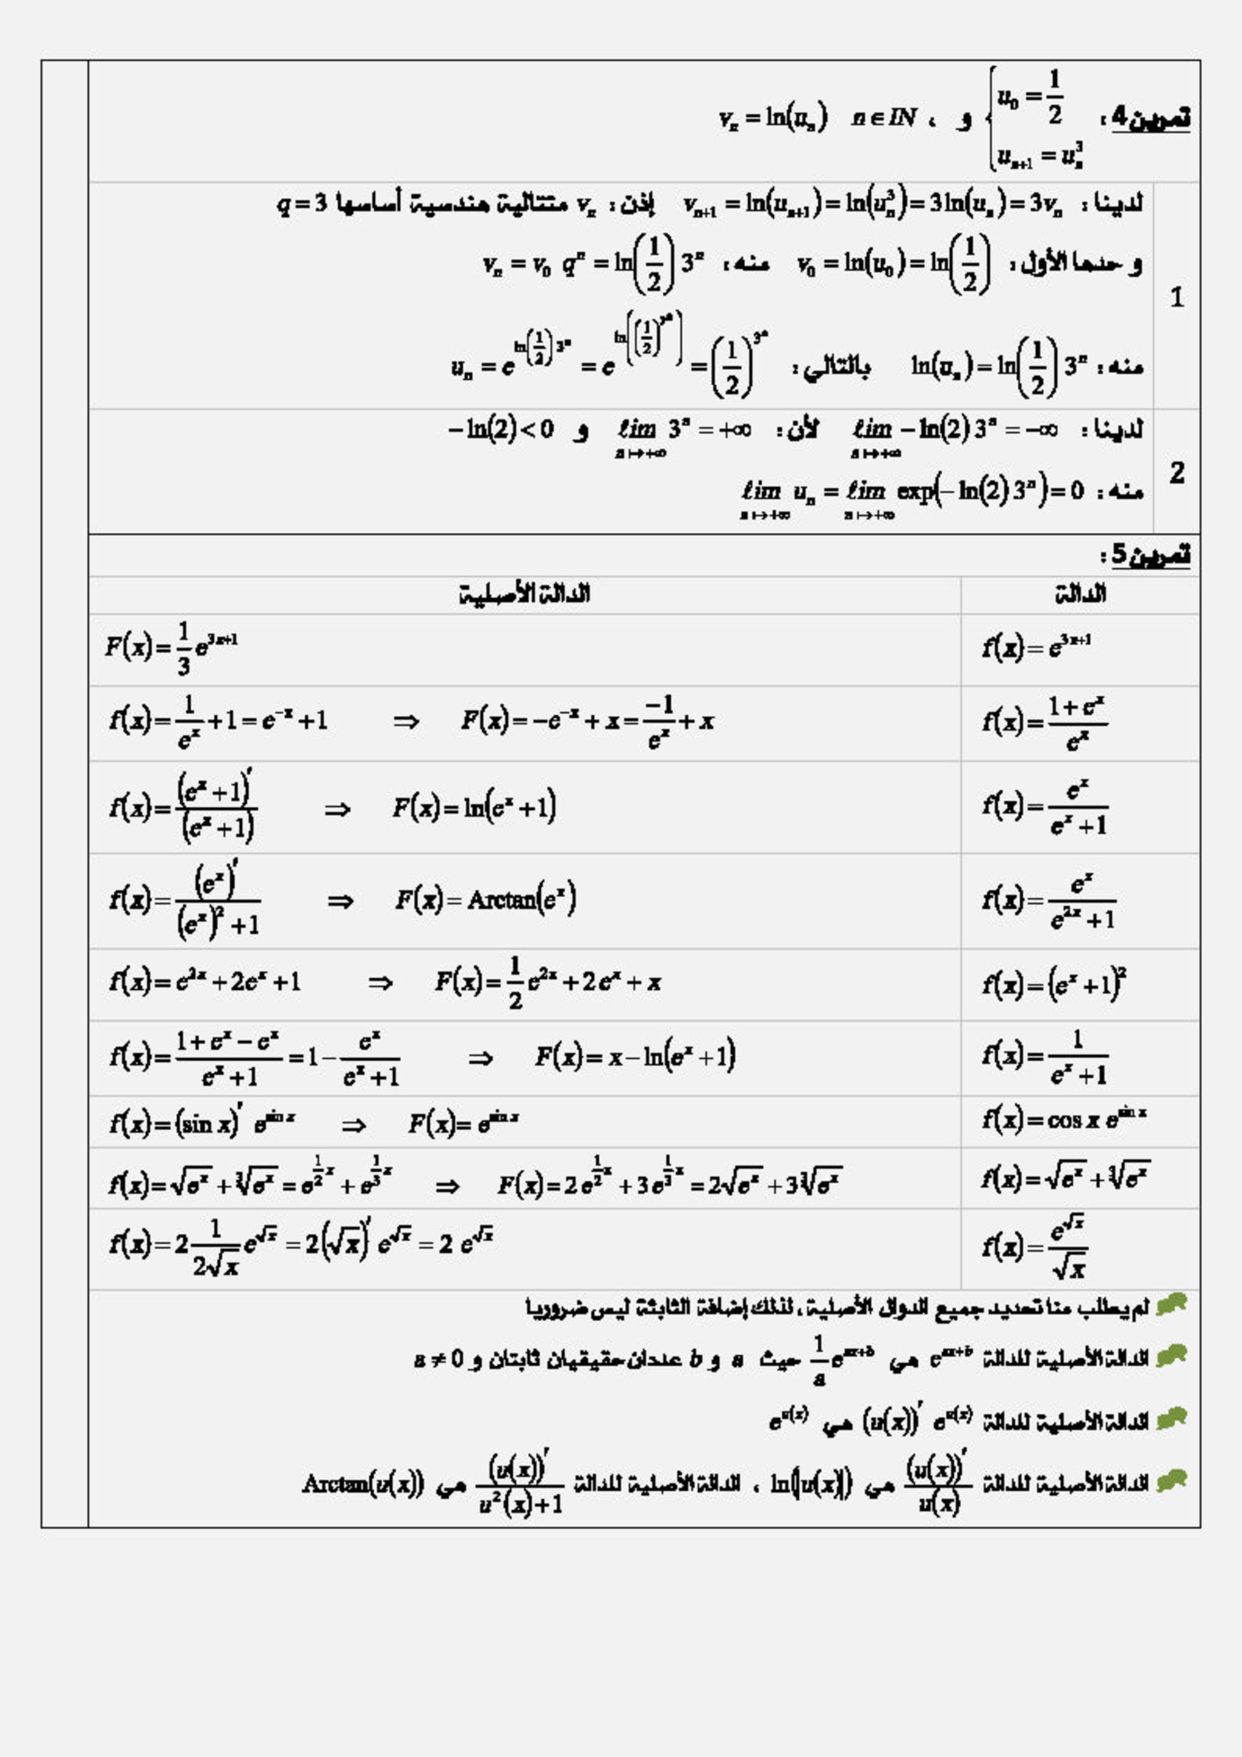 تمرين4 : $\begin{cases} u_0 = \frac{1}{2} \\ u_{n+1} = u_n^3 \end{cases}$ و ، $v_n = \ln(u_n) \quad n \in IN$
1
لدينا : $v_{n+1} = \ln(u_{n+1}) = \ln(u_n^3) = 3\ln(u_n) = 3v_n$ إذن : $v_n$ متتالية هندسية أساسها $q = 3$
و حدها الأول : $v_0 = \ln(u_0) = \ln\left(\frac{1}{2}\right)$ منه : $v_n = v_0 \ q^n = \ln\left(\frac{1}{2}\right) 3^n$
منه : $\ln(u_n) = \ln\left(\frac{1}{2}\right) 3^n$ بالتالي : $u_n = e^{\ln\left(\frac{1}{2}\right) 3^n} = e^{\ln\left(\left(\frac{1}{2}\right)^{3^n}\right)} = \left(\frac{1}{2}\right)^{3^n}$
2
لدينا : $\lim_{n \mapsto +\infty} -\ln(2) 3^n = -\infty$ لأن : $\lim_{n \mapsto +\infty} 3^n = +\infty$ و $-\ln(2) < 0$
منه : $\lim_{n \mapsto +\infty} u_n = \lim_{n \mapsto +\infty} \exp(-\ln(2) 3^n) = 0$
تمرين5 :
الدالة الدالة الأصلية
$f(x) = e^{3x+1}$ $F(x) = \frac{1}{3} e^{3x+1}$
$f(x) = \frac{1+e^x}{e^x}$ $f(x) = \frac{1}{e^x} + 1 = e^{-x} + 1 \Rightarrow F(x) = -e^{-x} + x = \frac{-1}{e^x} + x$
$f(x) = \frac{e^x}{e^x+1}$ $f(x) = \frac{(e^x+1)'}{(e^x+1)} \Rightarrow F(x) = \ln(e^x+1)$
$f(x) = \frac{e^x}{e^{2x}+1}$ $f(x) = \frac{(e^x)'}{(e^x)^2+1} \Rightarrow F(x) = \text{Arctan}(e^x)$
$f(x) = (e^x+1)^2$ $f(x) = e^{2x} + 2e^x + 1 \Rightarrow F(x) = \frac{1}{2} e^{2x} + 2e^x + x$
$f(x) = \frac{1}{e^x+1}$ $f(x) = \frac{1+e^x-e^x}{e^x+1} = 1 - \frac{e^x}{e^x+1} \Rightarrow F(x) = x - \ln(e^x+1)$
$f(x) = \cos x \ e^{\sin x}$ $f(x) = (\sin x)' \ e^{\sin x} \Rightarrow F(x) = e^{\sin x}$
$f(x) = \sqrt{e^x} + \sqrt[3]{e^x}$ $f(x) = \sqrt{e^x} + \sqrt[3]{e^x} = e^{\frac{1}{2}x} + e^{\frac{1}{3}x} \Rightarrow F(x) = 2e^{\frac{1}{2}x} + 3e^{\frac{1}{3}x} = 2\sqrt{e^x} + 3\sqrt[3]{e^x}$
$f(x) = \frac{e^{\sqrt{x}}}{\sqrt{x}}$ $f(x) = 2\frac{1}{2\sqrt{x}} e^{\sqrt{x}} = 2(\sqrt{x})' \ e^{\sqrt{x}} = 2 \ e^{\sqrt{x}}$
لم يطلب منا تحديد جميع الدوال الأصلية ، لذلك إضافة الثابتة ليس ضروريا
الدالة الأصلية للدالة $e^{ax+b}$ هي $\frac{1}{a} e^{ax+b}$ حيث $a$ و $b$ عددان حقيقيان ثابتان و $a \neq 0$
الدالة الأصلية للدالة $(u(x))' \ e^{u(x)}$ هي $e^{u(x)}$
الدالة الأصلية للدالة $\frac{(u(x))'}{u(x)}$ هي $\ln(|u(x)|)$ ، الدالة الأصلية للدالة $\frac{(u(x))'}{u^2(x)+1}$ هي $\text{Arctan}(u(x))$